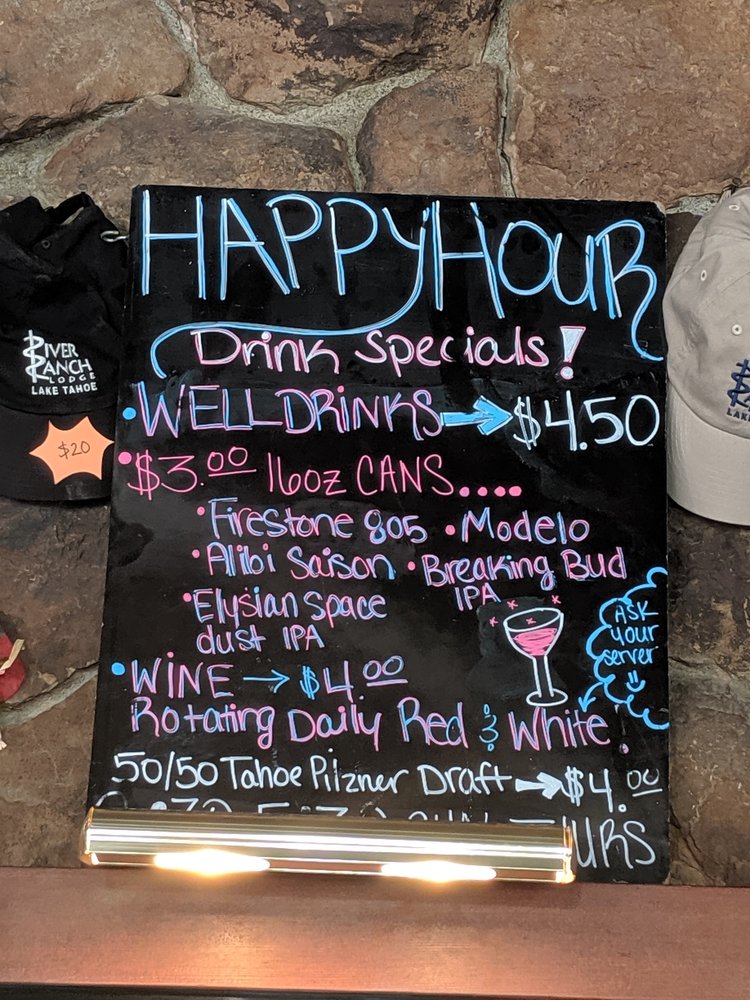 HAPPY HOUR
Drink Specials!
• WELL DRINKS → $4.50
• $3.00 16oz CANS.....
• Firestone 805 • Modelo
• Alibi Saison • Breaking Bud
IPA
• Elysian Space
dust IPA
ASK
your
server
• WINE → $4.00
Rotating Daily Red & White.
50/50 Tahoe Pilzner Draft → $4.00
RIVER
RANCH
LODGE
LAKE TAHOE
$20